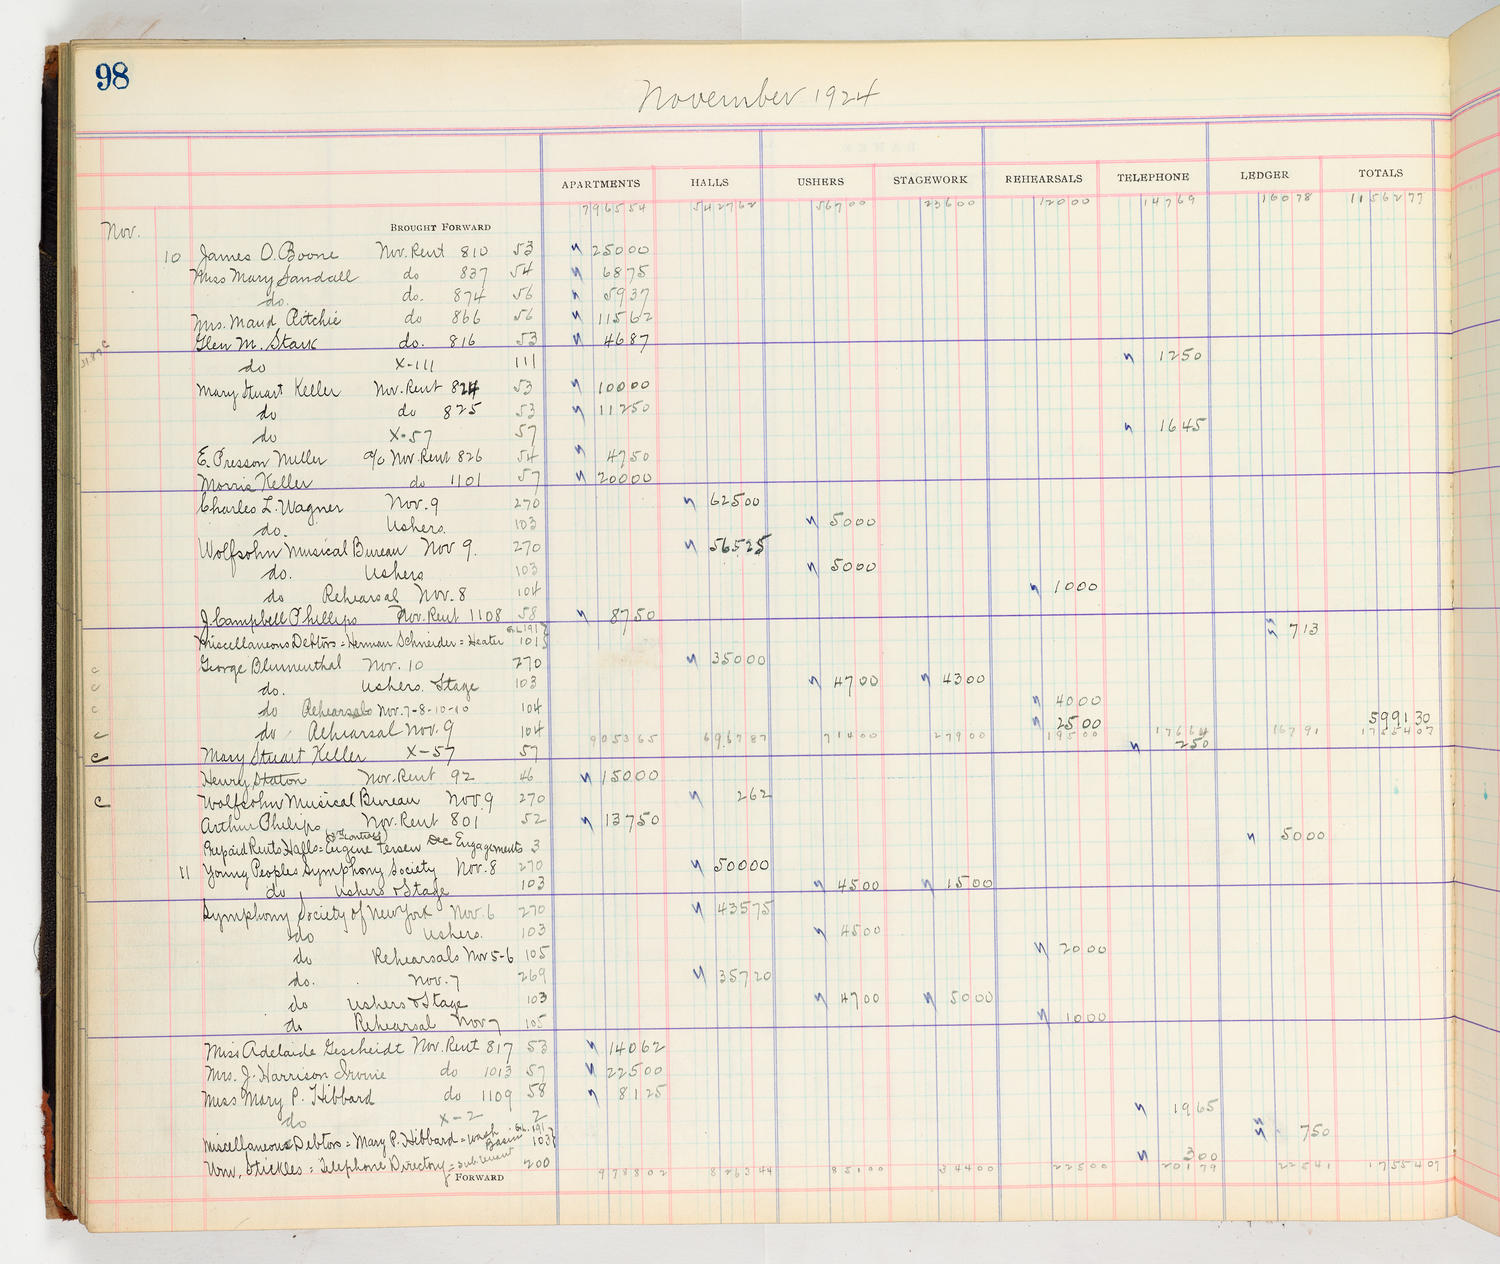 98
November 1924
APARTMENTS HALLS USHERS STAGEWORK REHEARSALS TELEPHONE LEDGER TOTALS
796554 542762 56700 23600 12000 14769 16078 1156277
Nov. BROUGHT FORWARD
10 James O. Boone Nov. Rent 810 53 25000
Miss Mary Sandall do 837 54 6875
do. do. 874 56 5937
Mrs. Maud Ritchie do 866 56 11562
Glen M. Stark do. 816 53 4687
do X-111 111 1250
Mary Stuart Keller Nov. Rent 824 53 10000
do do 825 53 11250
do X-57 57 1645
E. Presson Miller a/c Nov. Rent 826 54 4750
Morris Keller do 1101 57 20000
Charles L. Wagner Nov. 9 270 62500
do. Ushers. 103 5000
Wolfsohn Musical Bureau Nov 9. 270 56525
do. Ushers 103 5000
do Rehearsal Nov. 8 104 1000
J. Campbell Phillips Nov. Rent 1108 58 8750
Miscellaneous Debtors = Herman Schneider = Heater 101 713
George Blumenthal Nov. 10 270 35000
do. Ushers. Stage 103 4700 4300
do Rehearsals Nov. 7-8-10-10 104 4000
do Rehearsal Nov. 9 104 2500 599130
905365 696787 71400 27900 19500 17664 16791 1755407
Mary Stuart Keller X-57 57 250
Henry Staton Nov. Rent 92 46 15000
Wolfsohn Musical Bureau Nov. 9 270 262
Arthur Philips Nov. Rent 801 52 13750
Prepaid Rents Halls = Eugene Fersen Dec Engagements 3 5000
11 Young Peoples Symphony Society Nov. 8 270 50000
do Ushers & Stage 103 4500 1500
Symphony Society of New York Nov. 6 270 43575
do Ushers. 103 4500
do Rehearsals Nov 5-6 105 2000
do. Nov. 7 269 35720
do Ushers & Stage 103 4700 5000
do Rehearsal Nov 7 105 1000
Miss Adelaide Gescheidt Nov. Rent 817 53 14062
Mrs. J. Harrison Irvine do 1013 57 22500
Miss Mary P. Hibbard do 1109 58 8125
do X-2 2 1965
Miscellaneous Debtors = Mary P. Hibbard = Wash Basin 103 750
Wm. Stickles = Telephone Directory = 200 300
FORWARD 978802 826344 85100 34400 22500 20179 22541 1755407